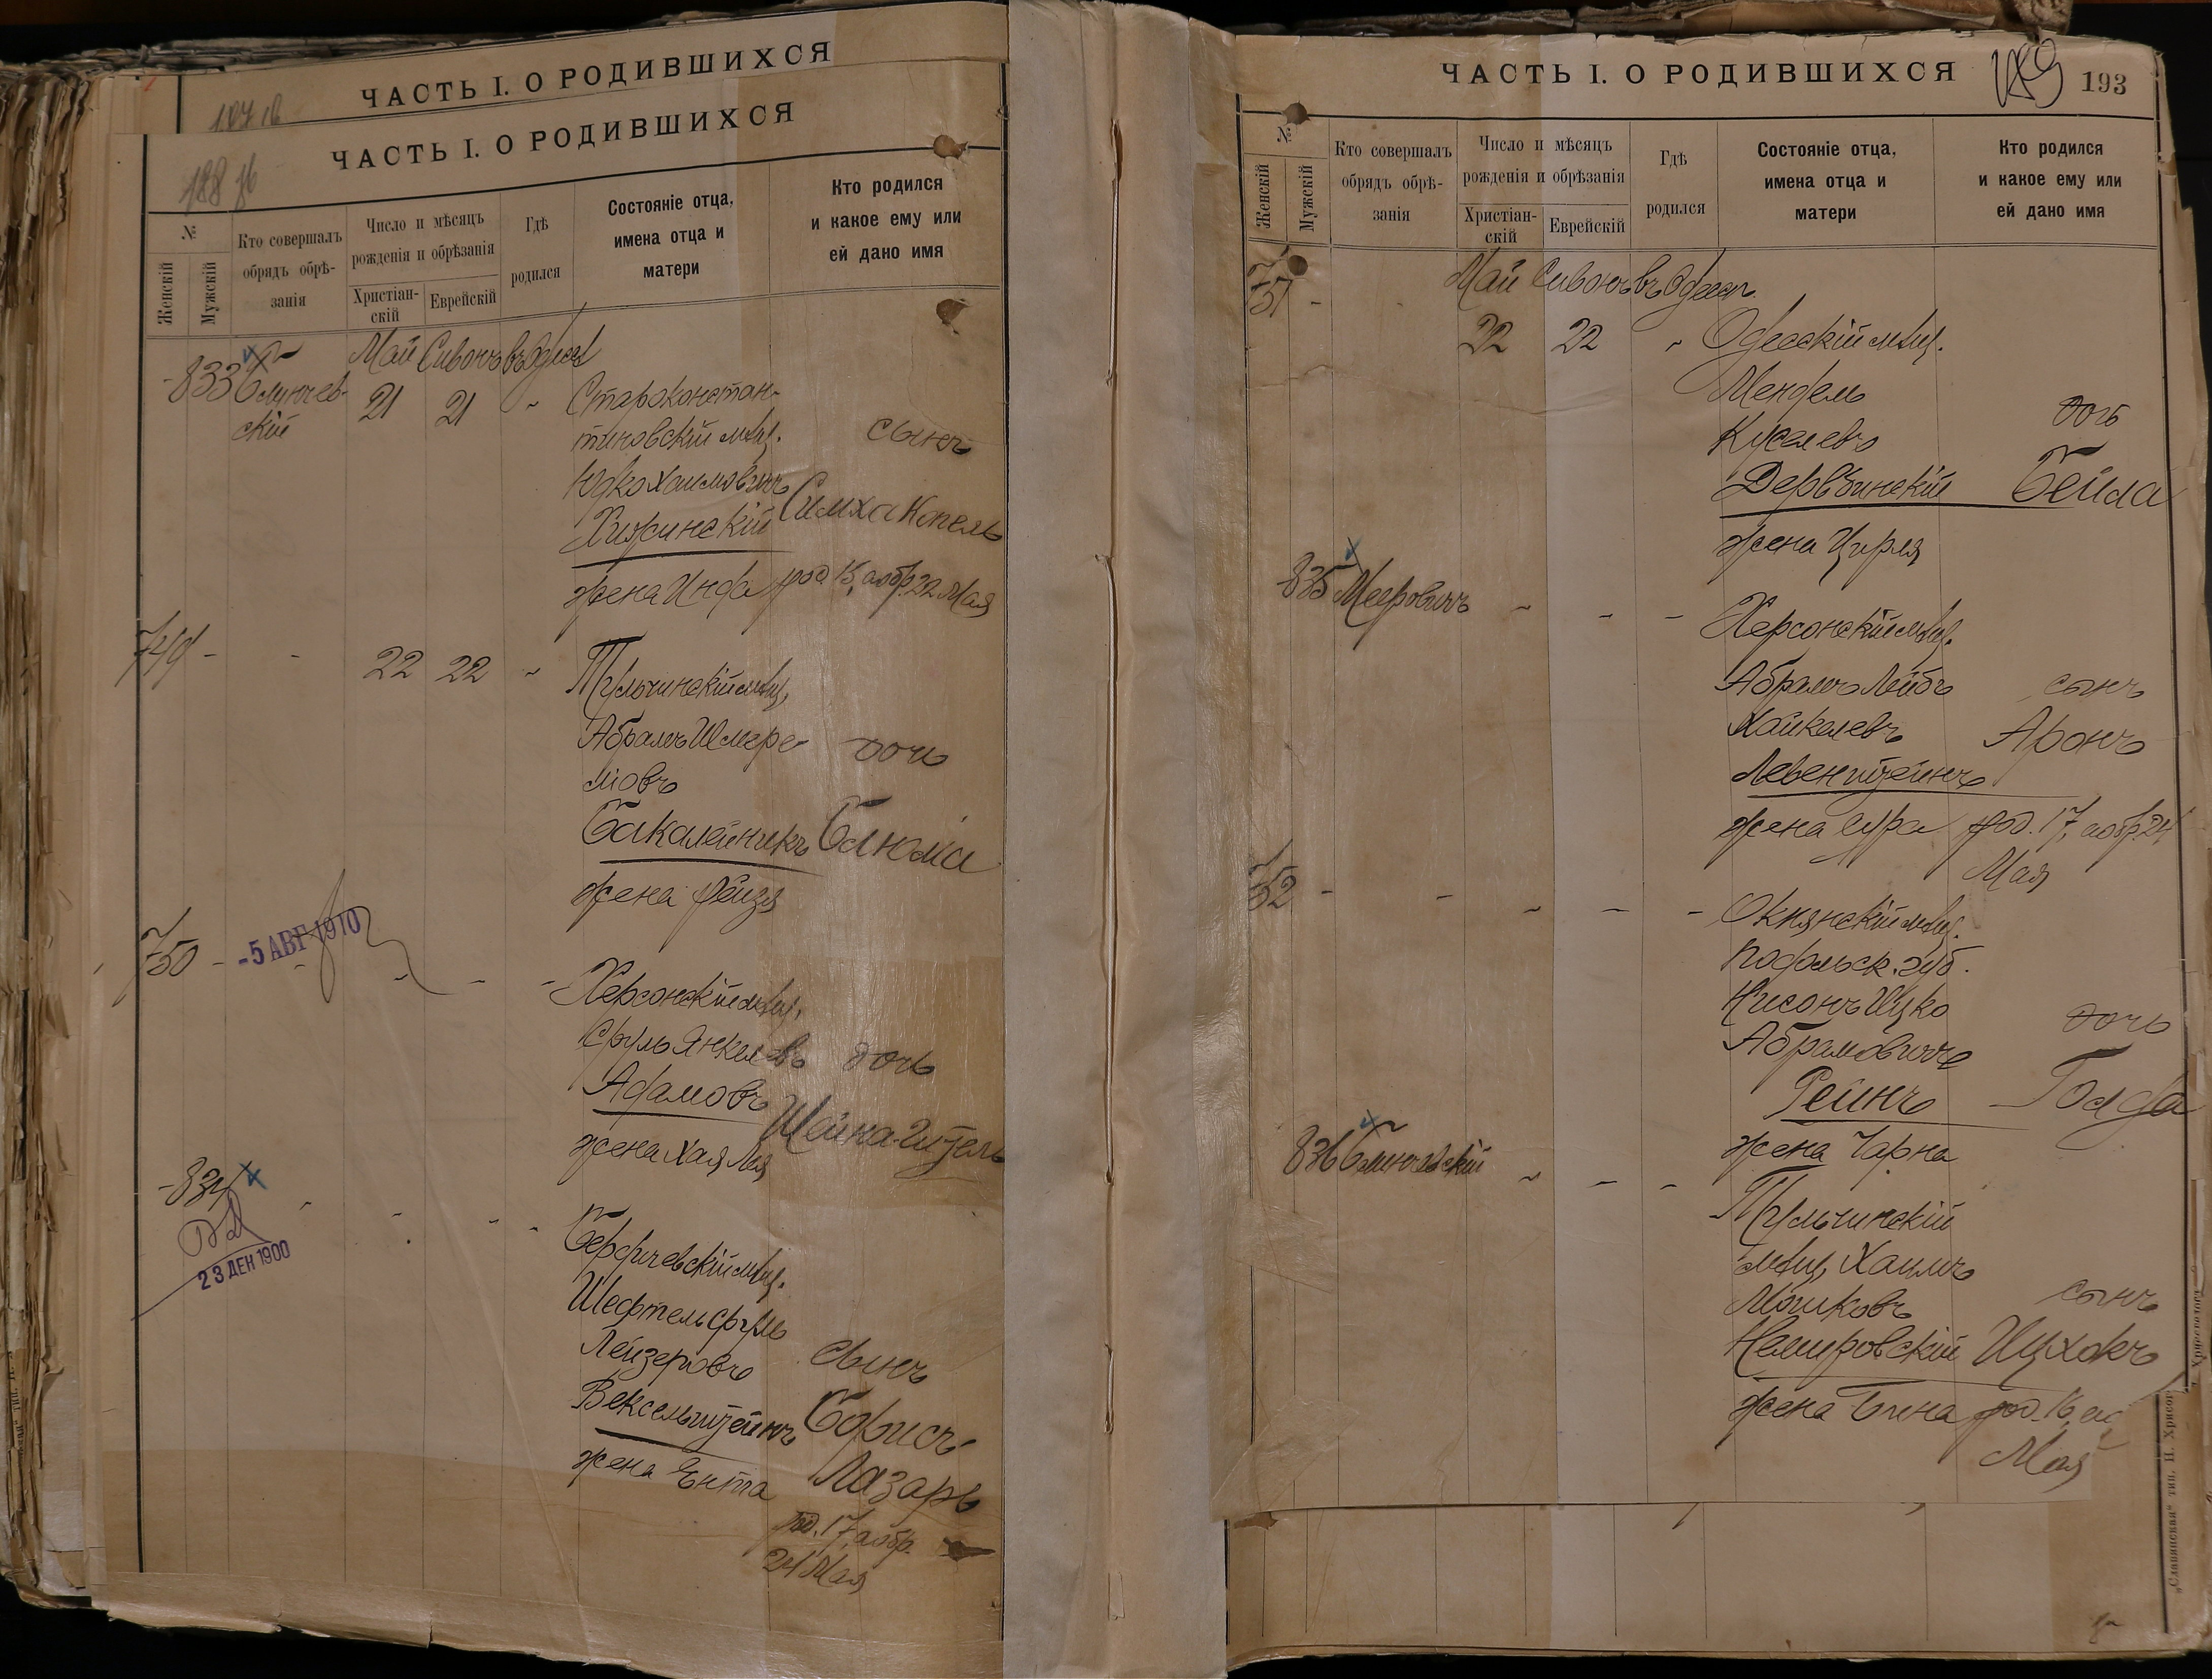 ЧАСТЬ I. О РОДИВШИХСЯ
ЧАСТЬ I. О РОДИВШИХСЯ
188
№
Женскій
Мужскій
Кто совершалъ
обрядъ обрѣ-
занія
Число и мѣсяцъ
рожденія и обрѣзанія
Христіан-
скій
Еврейскій
Гдѣ
родился
Состояніе отца,
имена отца и
матери
Кто родился
и какое ему или
ей дано имя
Май Сивонъ въ Одессѣ
833 Блинчев-
скій
21 21 „ Староконстан-
тиновскій мѣщ.
Юдко Хаимовичъ
Хижинскій
жена Инда
сынъ
Симха Копель
род. 15, а обр. 22 Мая
749 - - 22 22 „ Тульчинскій мѣщ.
Абрамъ Шмере
ліовъ
Бакалейникъ
жена Рейзя
дочь
Блюма
750 - - - - -
-5 АВГ 1910
Херсонскій мѣщ.
Сруль Янкелевъ
Адамовъ
жена Хая Лея
дочь
Шейна-Гитель
-834
23 ДЕК 1900
Бердичевскій мѣщ.
Шефтель Сруль
Лейзеровъ
Вексельштейнъ
жена Ента
сынъ
Борисъ
Лазарь
род. 17, а обр.
24 Мая
ЧАСТЬ I. О РОДИВШИХСЯ
189
193
№
Женскій
Мужскій
Кто совершалъ
обрядъ обрѣ-
занія
Число и мѣсяцъ
рожденія и обрѣзанія
Христіан-
скій
Еврейскій
Гдѣ
родился
Состояніе отца,
имена отца и
матери
Кто родился
и какое ему или
ей дано имя
Май Сивонъ въ Одессѣ
751 -
22 22 „ Одесскій мѣщ.
Мендель
Куселевъ
Дербинскій
жена Цирля
дочь
Бейла
835 Мееровичъ - - -
Херсонскій мѣщ.
Абрамъ Лейбъ
Хайкелевъ
Левенштейнъ
жена Сура
сынъ
Аронъ
род. 17, а обр. 24
Мая
752 - - - - -
Окнянскій мѣщ.
Подольск. губ.
Нисонъ Ицко
Абрамовичъ
Рейнъ
жена Чарна
дочь
Голда
836 Блинчевскій - - -
Тульчинскій
мѣщ. Хаимъ
Мошковъ
Немировскій
жена Бина
сынъ
Ицхокъ
род. 16, а
Мая